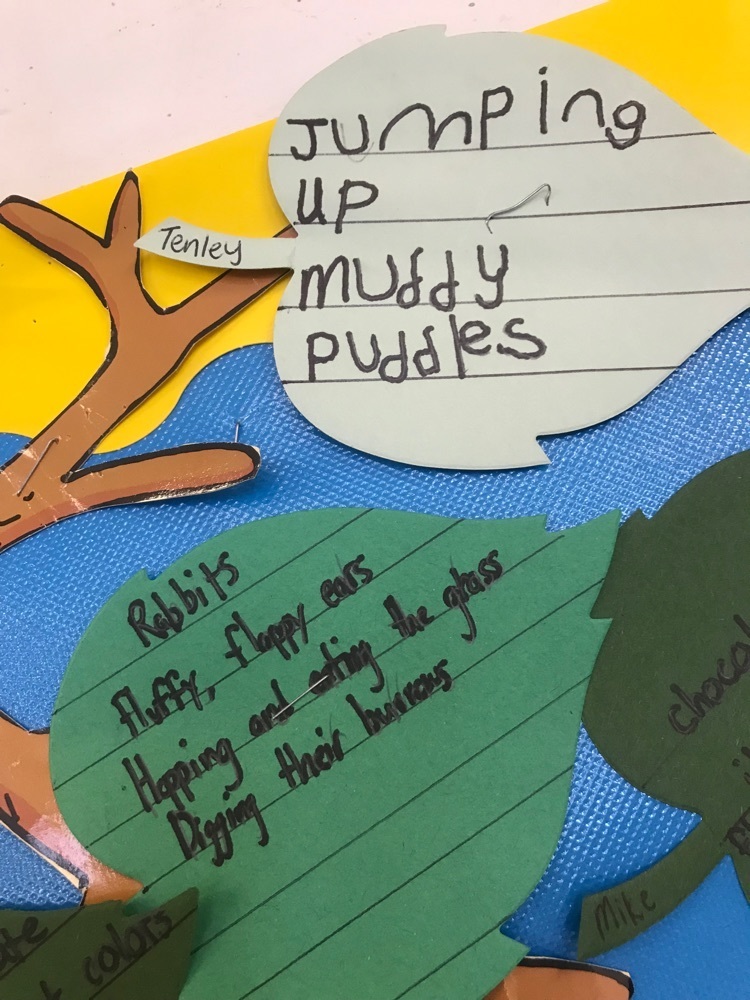 Jumping
up
Tenley
muddy
puddles
Rabbits
fluffy, floppy ears
Hopping and eating the grass
Digging their burrows
Mike
colors